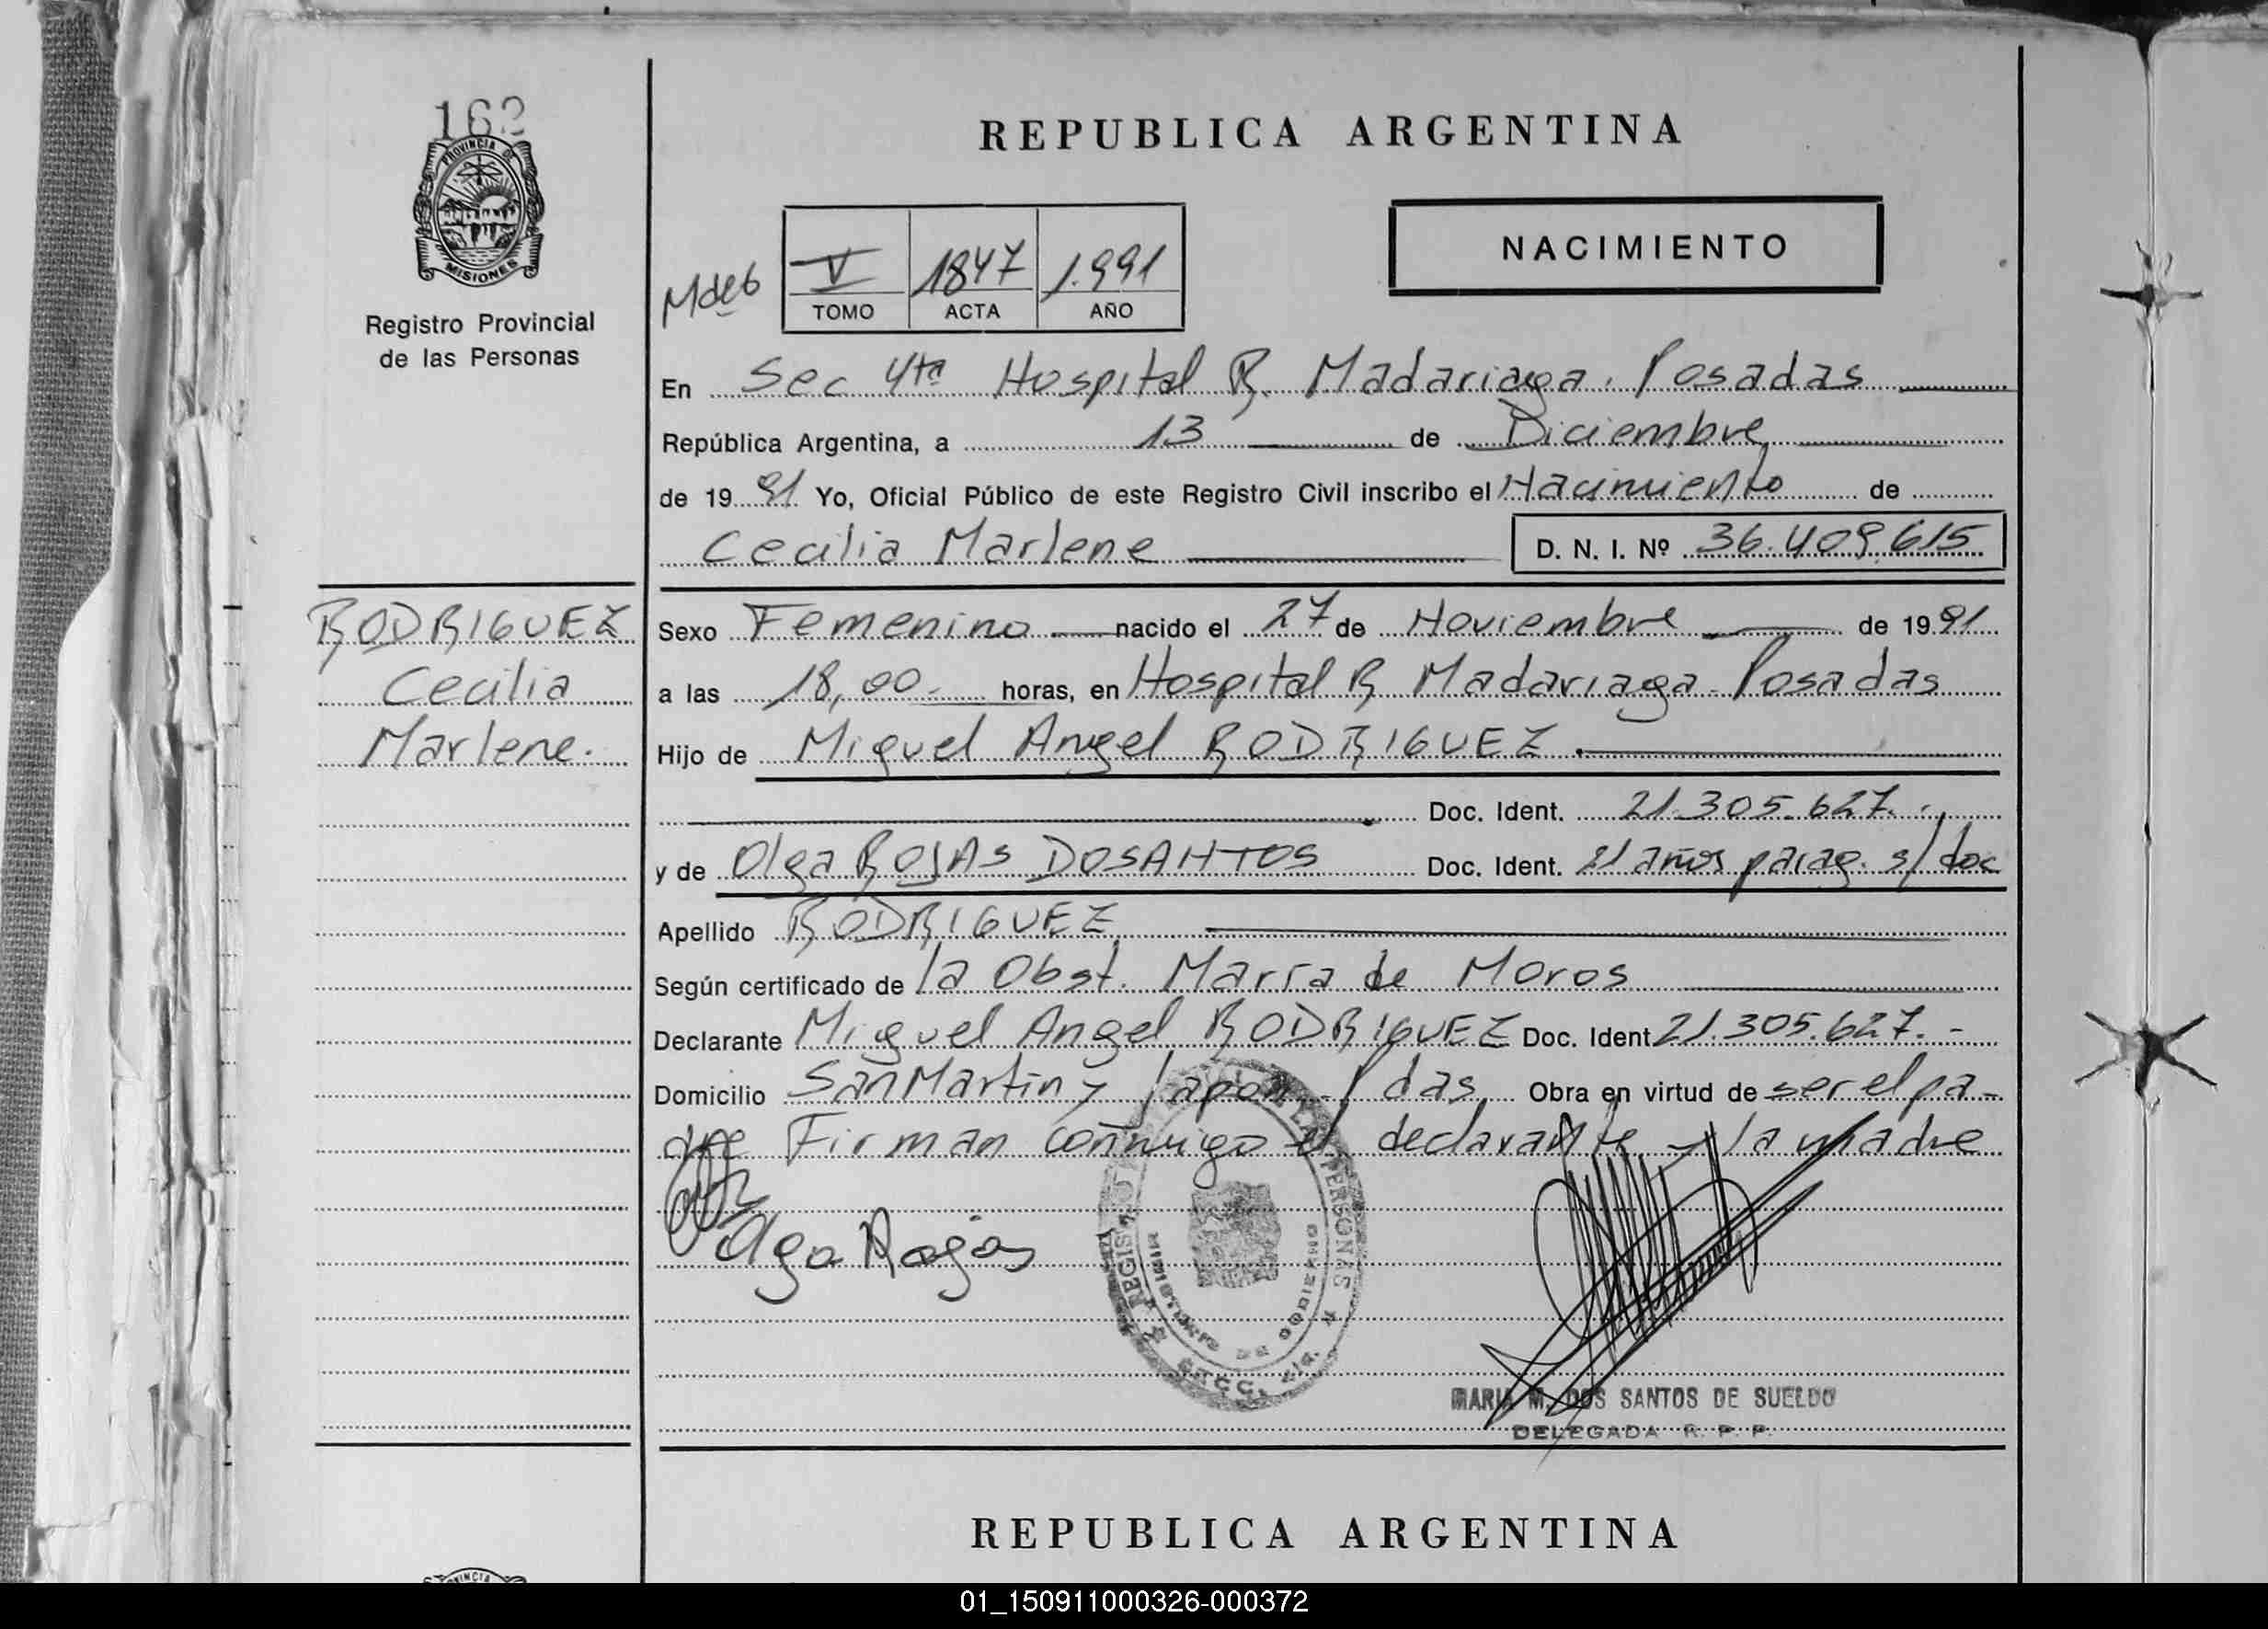 162
PROVINCIA DE
MISIONES
Registro Provincial
de las Personas
REPUBLICA ARGENTINA
NACIMIENTO
V 1847 1.991
TOMO ACTA AÑO
En Sec 4ta Hospital R. Madariaga. Posadas
República Argentina, a 13 de Diciembre
de 19 91 Yo, Oficial Público de este Registro Civil inscribo el Nacimiento de
Cecilia Marlene D. N. I. Nº 36.409.615
RODRIGUEZ
Cecilia
Marlene.
Sexo Femenino nacido el 27 de Noviembre de 19 91
a las 18,00. horas, en Hospital R Madariaga - Posadas
Hijo de Miguel Angel RODRIGUEZ.
Doc. Ident. 21.305.627.
y de Olga ROJAS DOSANTOS Doc. Ident. 21 años parag. s/doc
Apellido RODRIGUEZ
Según certificado de la Obst. María de Moros
Declarante Miguel Angel RODRIGUEZ Doc. Ident 21.305.627. -
Domicilio San Martin y Japon - P das. Obra en virtud de ser el pa-
dre Firman conmigo el declarante y la madre
Olga Rojas
REGISTRO PERSONAS
MINISTERIO DE GOBIERNO
MARIA M. DOS SANTOS DE SUELDO
DELEGADA R. P. P.
REPUBLICA ARGENTINA
01_150911000326-000372